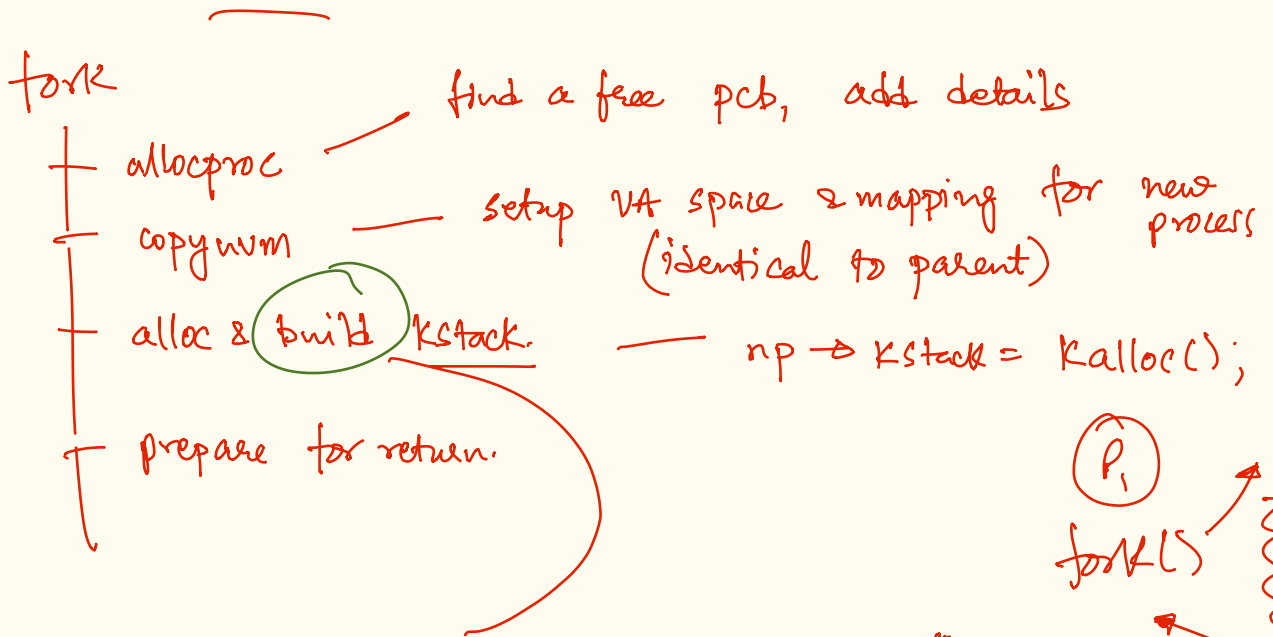 fork
find a free pcb, add details
allocproc
setup VA space & mapping for new process
copyuvm
(identical to parent)
alloc & build kstack.
np → kstack = kalloc();
prepare for return.
P1
fork()